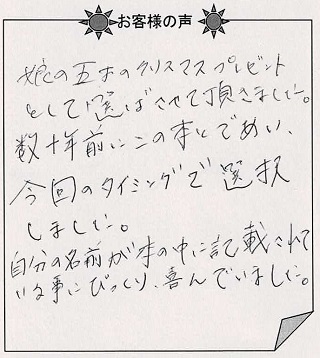 お客様の声
娘の五才のクリスマスプレゼント
として選ばさせて頂きました。
数十年前にこの本とであい、
今回のタイミングで選択
しました。
自分の名前が本の中に記載されて
いる事にびっくり、喜んでいました。